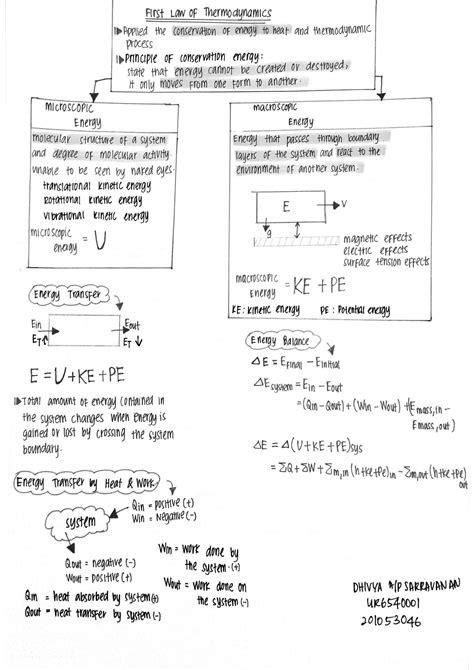 First Law of Thermodynamics
Applied the conservation of energy to heat and thermodynamic
process
Principle of conservation energy:
state that energy cannot be created or destroyed,
it only moves from one form to another.
microscopic
Energy
molecular structure of a system
and degree of molecular activity.
unable to be seen by naked eyes.
translational kinetic energy
Rotational kinetic energy
vibrational kinetic energy
microscopic
energy = U
macroscopic
Energy
Energy that passes through boundary
layers of the system and react to the
environment of another system.
E
V
g
magnetic effects
electric effects
surface tension effects
macroscopic
energy = KE + PE
KE: Kinetic energy PE: Potential energy
Energy Transfer
Ein Eout
ET↑ ET↓
E = U+KE+PE
Total amount of energy contained in
the system changes when Energy is
gained or lost by crossing the system
boundary.
Energy Balance
ΔE = Efinal − Einitial
ΔEsystem = Ein − Eout
= (Qin − Qout) + (Win − Wout) + (Emass,in −
Emass,out)
ΔE = Δ(U+KE+PE)sys
= ΣQ + ΣW + Σm,in (h+ke+pe)in − Σm,out (h+ke+pe)out
Energy Transfer by Heat & Work
system
Qin = positive (+)
Win = Negative (-)
Qout = negative (-)
Wout = positive (+)
Qin = heat absorbed by system (+)
Qout = heat transfer by system (-)
Win = work done by
the system (+)
Wout = work done on
the system (-)
DHIVYA A/P SARRAVANAN
UK6540001
201053046